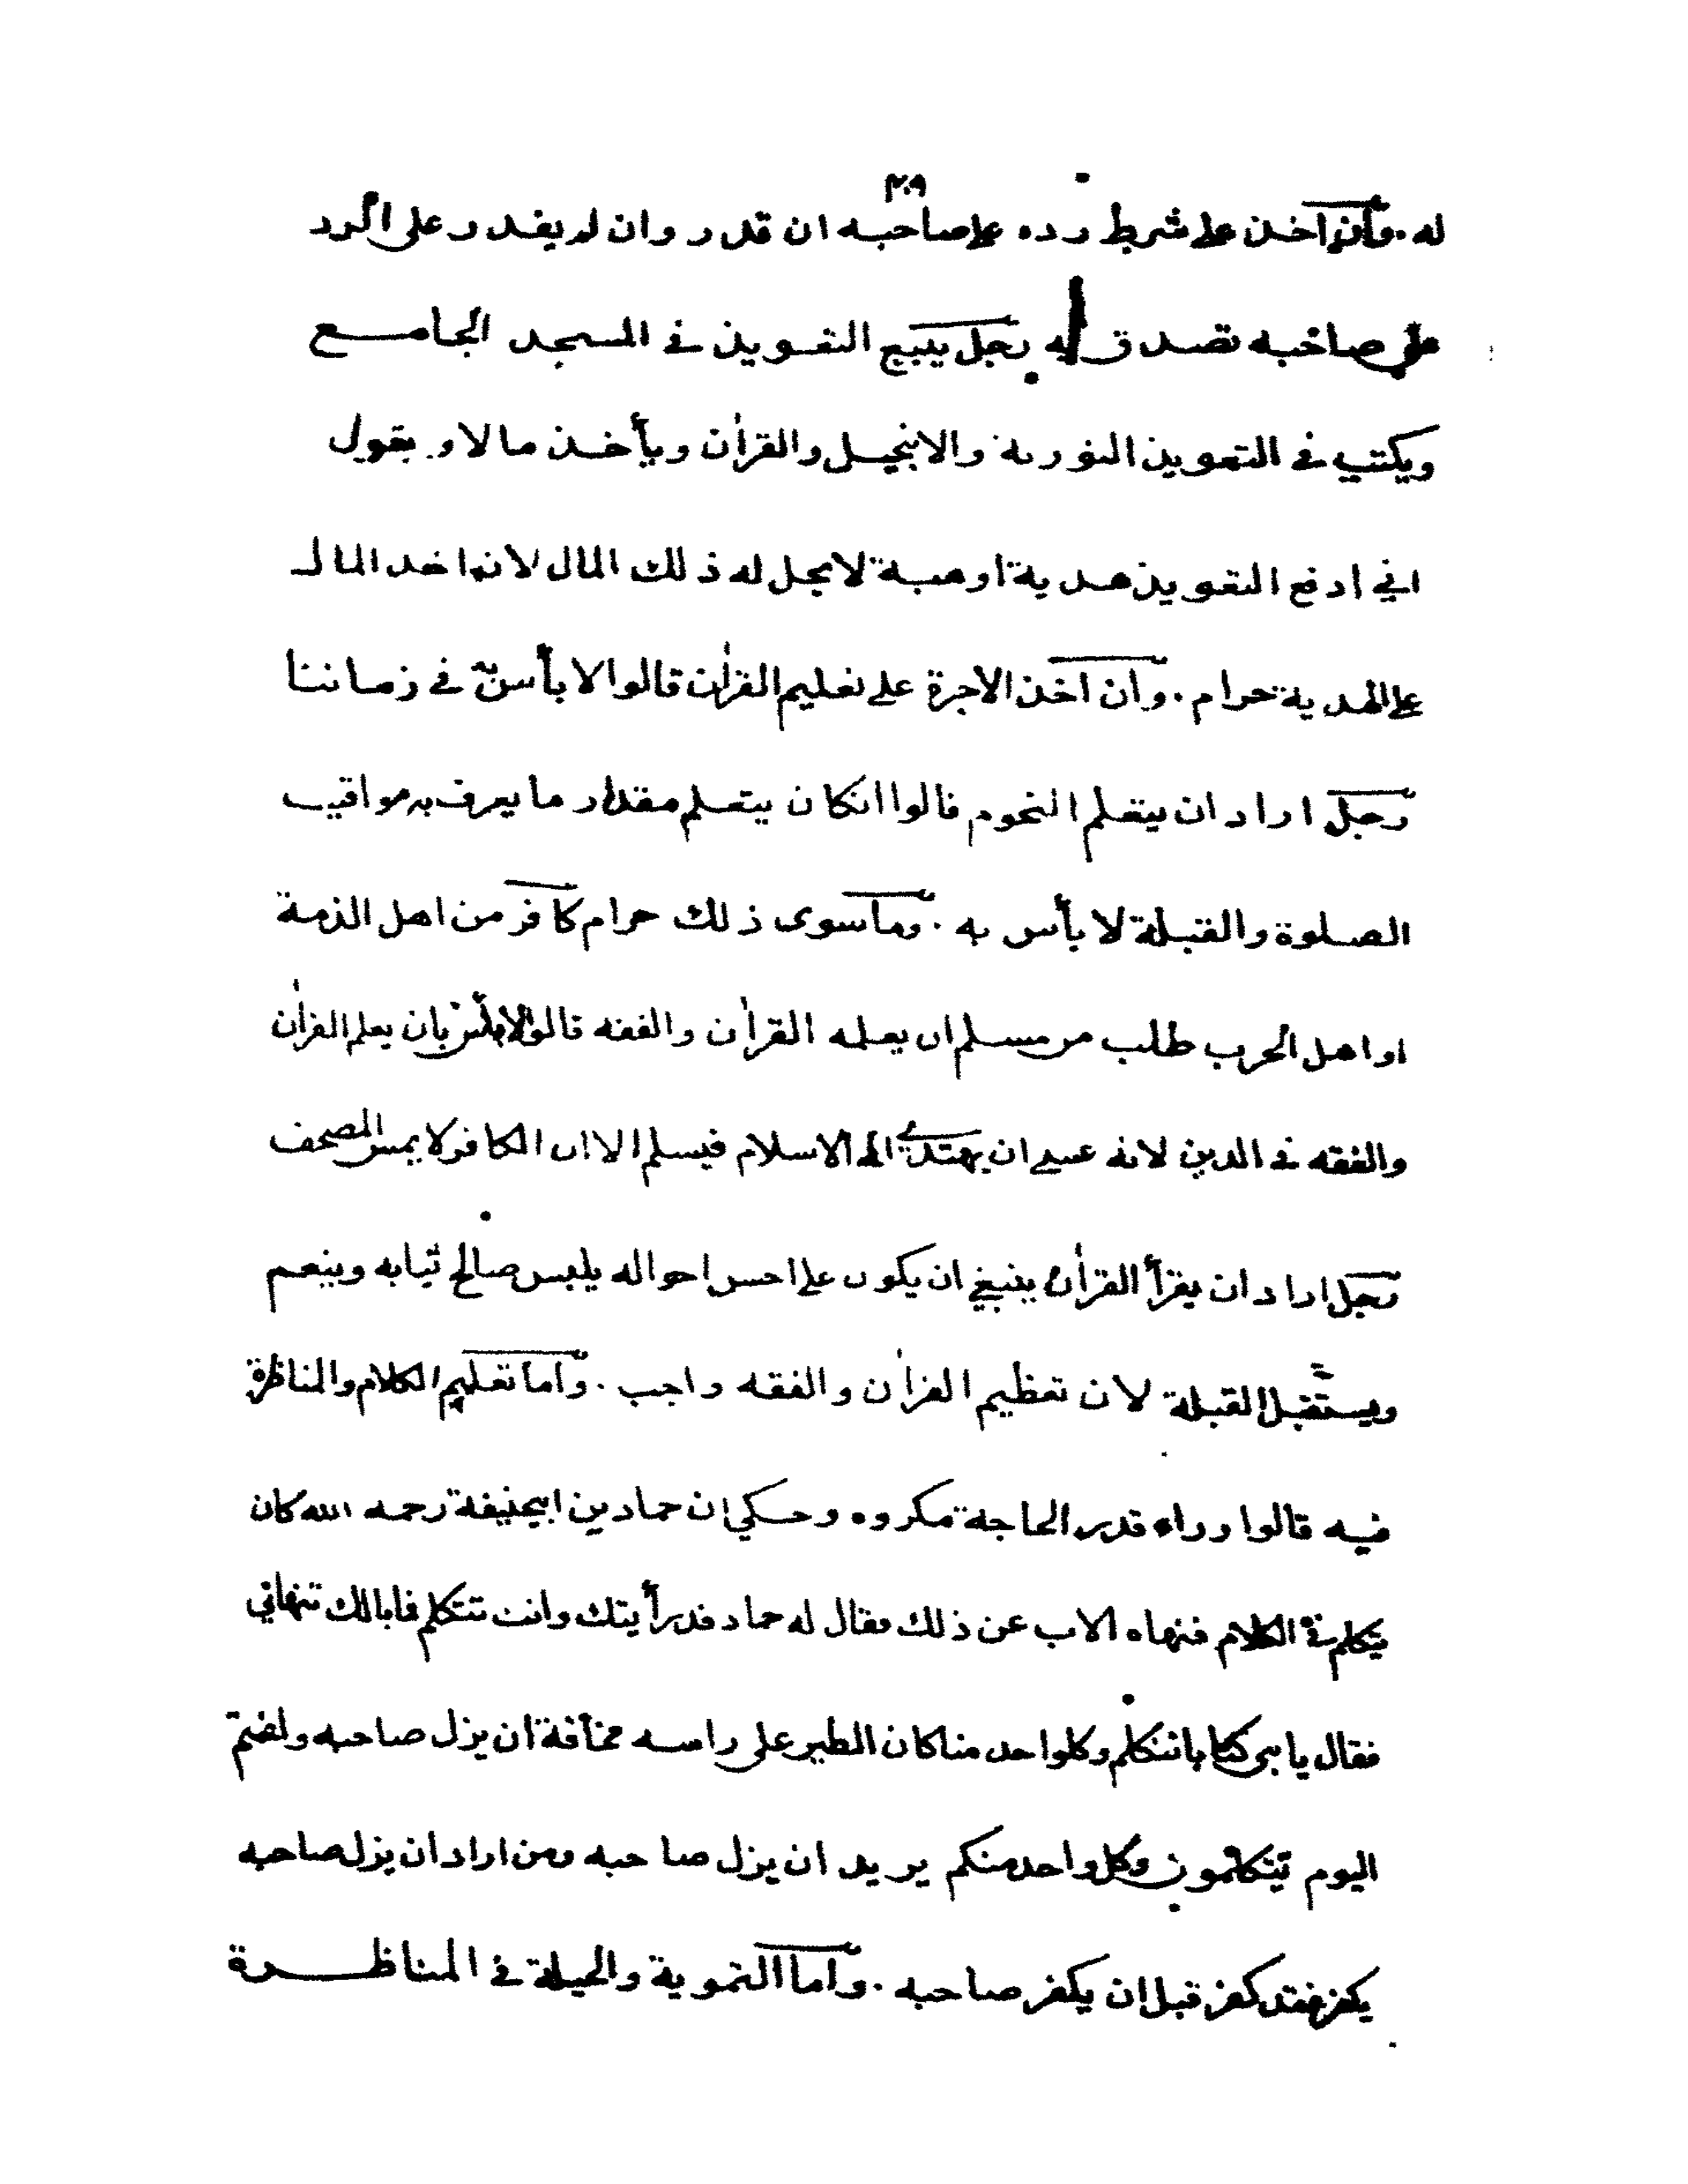 ٢٠٩
له . وان اخذ على شرط رده على صاحبه ان قدر وان لم يقدر على الرد
على صاحبه تصدق به رجل يبيع التعويذ في المسجد الجامع
ويكتب في التعويذ التورىة والانجيل والقرآن ويأخذ مالا و يقول
اني ادفع التعويذ هدية او هبة لا يحل له ذلك المال لانه اخد المال
على الهدية حرام . وان اخذ الاجرة على تعليم القرآن قالوا لا بأس به في زماننا
رجل اراد ان يتعلم النجوم قالوا انكان يتعلم مقدار ما يعرف به مواقيت
الصلوة والقبلة لا بأس به . وما سوى ذلك حرام كافر من اهل الذمة
او اهل الحرب طلب من مسلم ان يعلمه القرآن والفقه قالوا لا بأس بان يعلم القرآن
والفقه في الدين لانه عسى ان يهتدي الى الاسلام فيسلم الا ان الكافر لا يمس المصحف
رجل اراد ان يقرأ القرآن ينبغي ان يكون على احسن احواله يلبس صالح ثيابه ويتعمم
ويستقبل القبلة لان تعظيم القرآن والفقه واجب . واما تعليم الكلام والمناظرة
فيه قالوا وراء قدر الحاجة مكروه وحكي ان حماد بن ابيحنيفة رحمه الله كان
يتكلم في الكلام فنهاه الاب عن ذلك فقال له حماد قد رأيتك وانت تتكلم فما بالك تنهاني
فقال يا بني كنا نتكلم وكلواحد منا كان الطير على راسه مخافة ان يزل صاحبه وانتم
اليوم تتكلمون وكل واحد منكم يريد ان يزل صاحبه ومن اراد ان يزل صاحبه
يكفر فقد كفر قبل ان يكفر صاحبه . واما التموية والحيلة في المناظرة